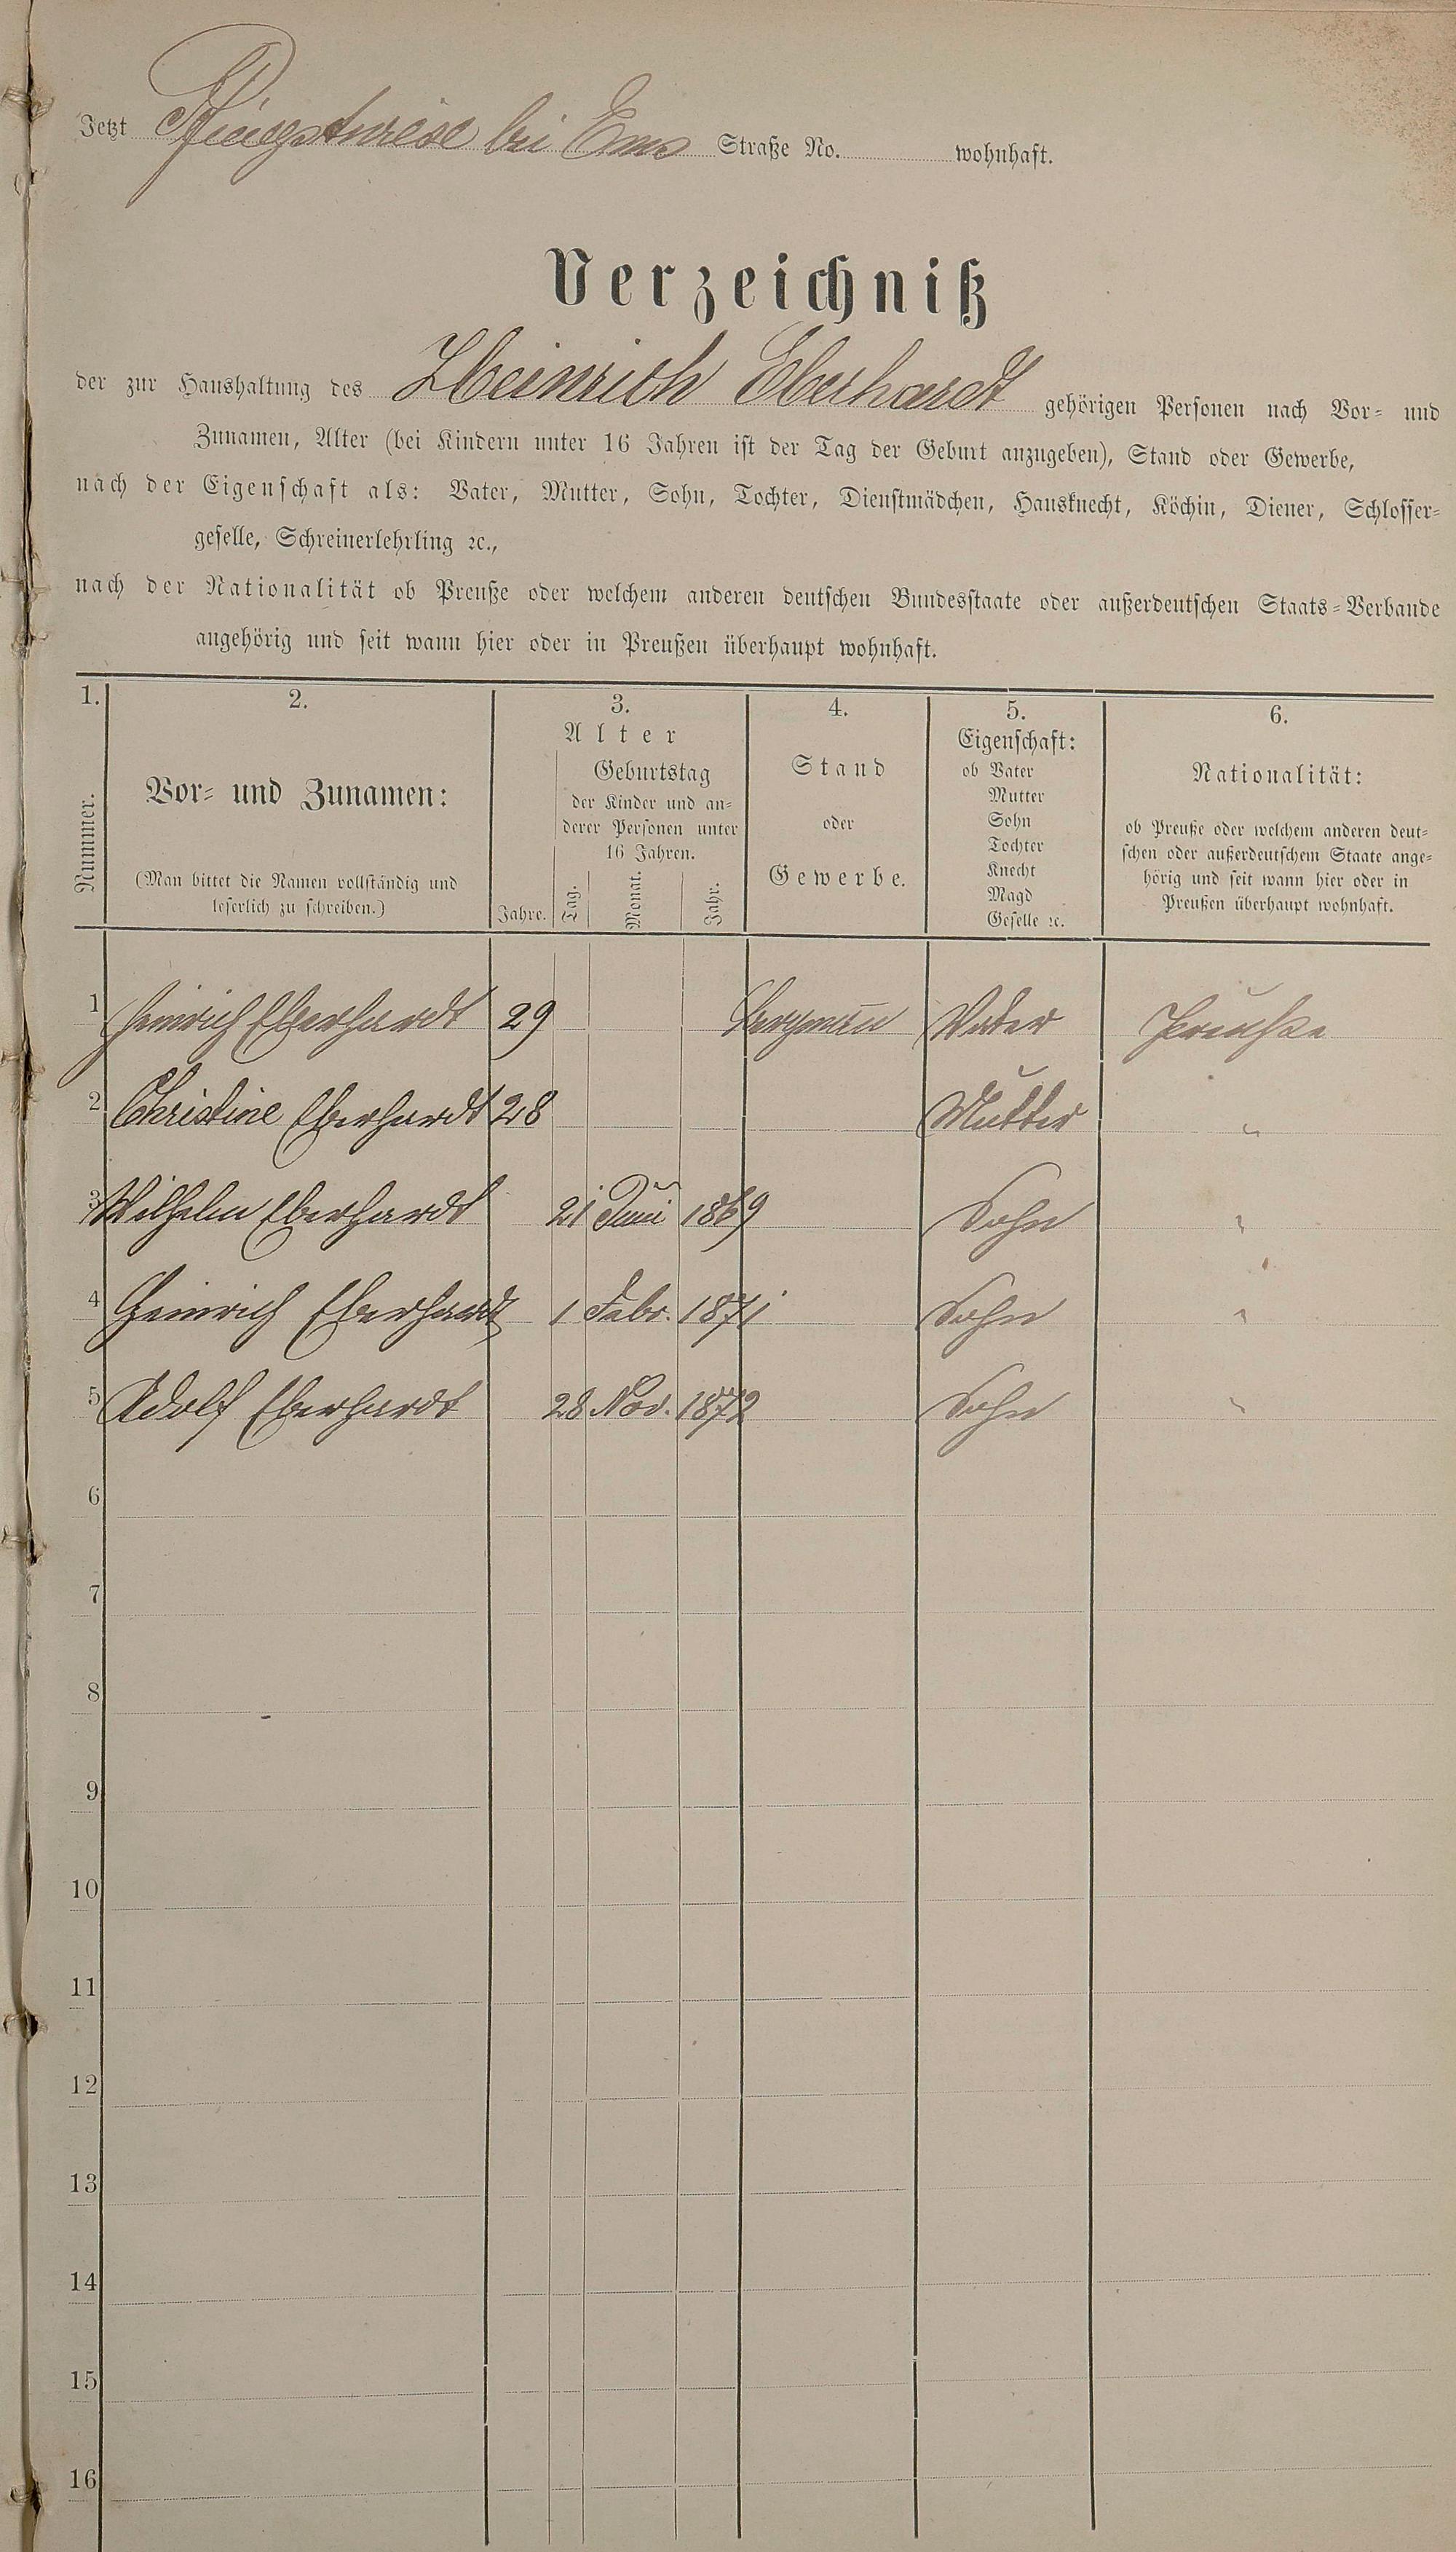 Jetzt Pfingstwiese bei Ems Straße No. wohnhaft.
Verzeichniß
der zur Haushaltung des Heinrich Eberhardt gehörigen Personen nach Vor- und
Zunamen, Alter (bei Kindern unter 16 Jahren ist der Tag der Geburt anzugeben), Stand oder Gewerbe,
nach der Eigenschaft als: Vater, Mutter, Sohn, Tochter, Dienstmädchen, Hausknecht, Köchin, Diener, Schlosser-
geselle, Schreinerlehrling ꝛc.,
nach der Nationalität ob Preuße oder welchem anderen deutschen Bundesstaate oder außerdeutschen Staats-Verbande
angehörig und seit wann hier oder in Preußen überhaupt wohnhaft.
1.
Nummer.
2.
Vor- und Zunamen:
(Man bittet die Namen vollständig und
leserlich zu schreiben.)
3.
Alter
Jahre.
Geburtstag
der Kinder und an-
derer Personen unter
16 Jahren.
Tag. Monat. Jahr.
4.
Stand
oder
Gewerbe.
5.
Eigenschaft:
ob Vater
Mutter
Sohn
Tochter
Knecht
Magd
Geselle ꝛc.
6.
Nationalität:
ob Preuße oder welchem anderen deut-
schen oder außerdeutschem Staate ange-
hörig und seit wann hier oder in
Preußen überhaupt wohnhaft.
1 Heinrich Eberhardt 29 Bergman Vater Preuße
2 Christine Eberhardt 28 Mutter "
3 Wilhelm Eberhardt 21 Juni 1869 Sohn "
4 Heinrich Eberhardt 1 Febr. 1871 Sohn "
5 Adolf Eberhardt 28 Nov. 1872 Sohn "
6
7
8
9
10
11
12
13
14
15
16